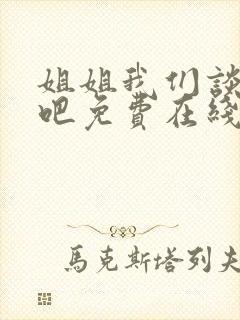 姐姐我们談
吧免費在綫
馬克斯塔列夫